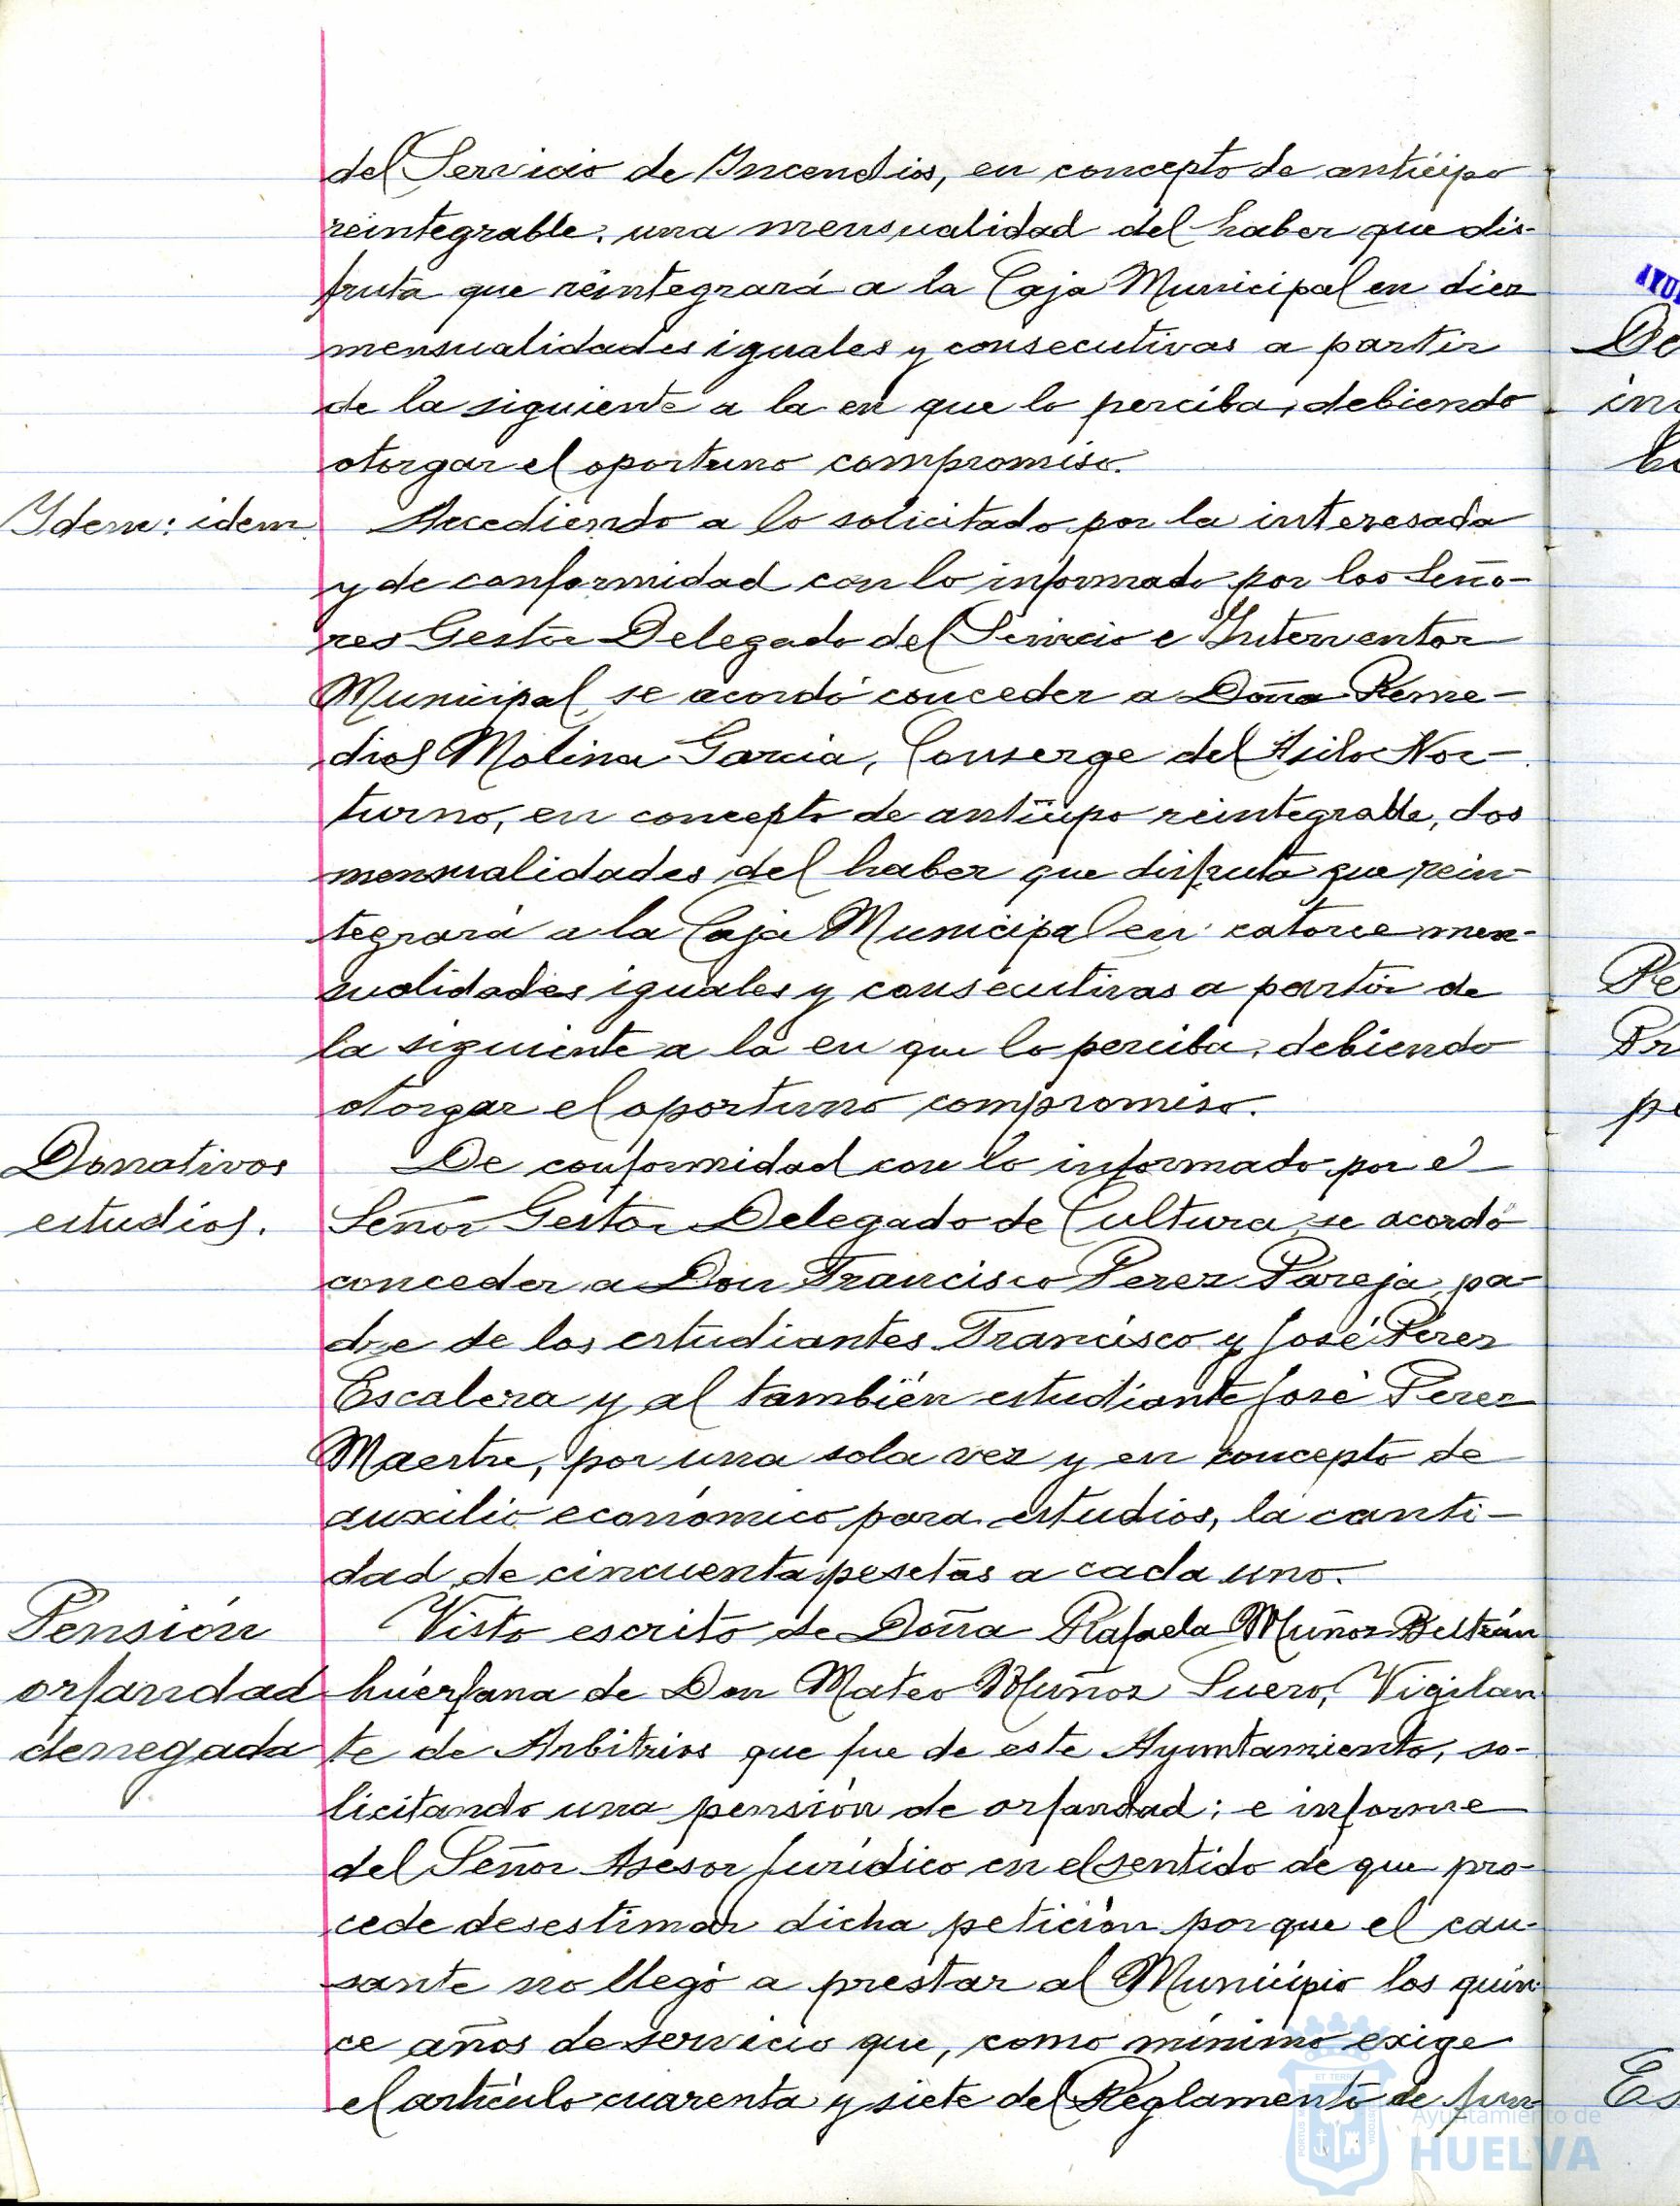 del Servicio de Incendios, en concepto de anticipo
reintegrable, una mensualidad del haber que dis-
fruta que reintegrará a la Caja Municipal en diez
mensualidades iguales y consecutivas a partir
de la siguiente a la en que lo perciba, debiendo
otorgar el oportuno compromiso.
Idem: idem.
Accediendo a lo solicitado por la interesada
y de conformidad con lo informado por los Seño-
res Gestor Delegado del Servicio e Interventor
Municipal, se acordó conceder a Doña Reme-
dios Molina Garcia, Conserge del Asilo Noc-
turno, en concepto de anticipo reintegrable, dos
mensualidades del haber que disfruta que rein-
tegrará a la Caja Municipal en catorce men-
sualidades iguales y consecutivas a partir de
la siguiente a la en que lo perciba, debiendo
otorgar el oportuno compromiso.
Donativos
estudios.
De conformidad con lo informado por el
Señor Gestor Delegado de Cultura, se acordó
conceder a Don Francisco Perez Pareja, pa-
dre de los estudiantes Francisco y José Perez
Escalera y al también estudiante José Perez
Maestre, por una sola vez y en concepto de
auxilio económico para estudios, la canti-
dad de cincuenta pesetas a cada uno.
Pensión
orfandad
denegada
Visto escrito de Doña Rafaela Muñoz Beltrán
huérfana de Don Mateo Muñoz Suero, Vigilan
te de Arbitrios que fue de este Ayuntamiento, so-
licitando una pensión de orfandad; e informe
del Señor Asesor Jurídico en el sentido de que pro-
cede desestimar dicha petición porque el cau-
sante no llegó a prestar al Municipio los quin-
ce años de servicio que, como mínimo exige
el artículo cuarenta y siete del Reglamento de fun
AYU
De
in
Pe
Pr
pe
Es
Ayuntamiento de
HUELVA